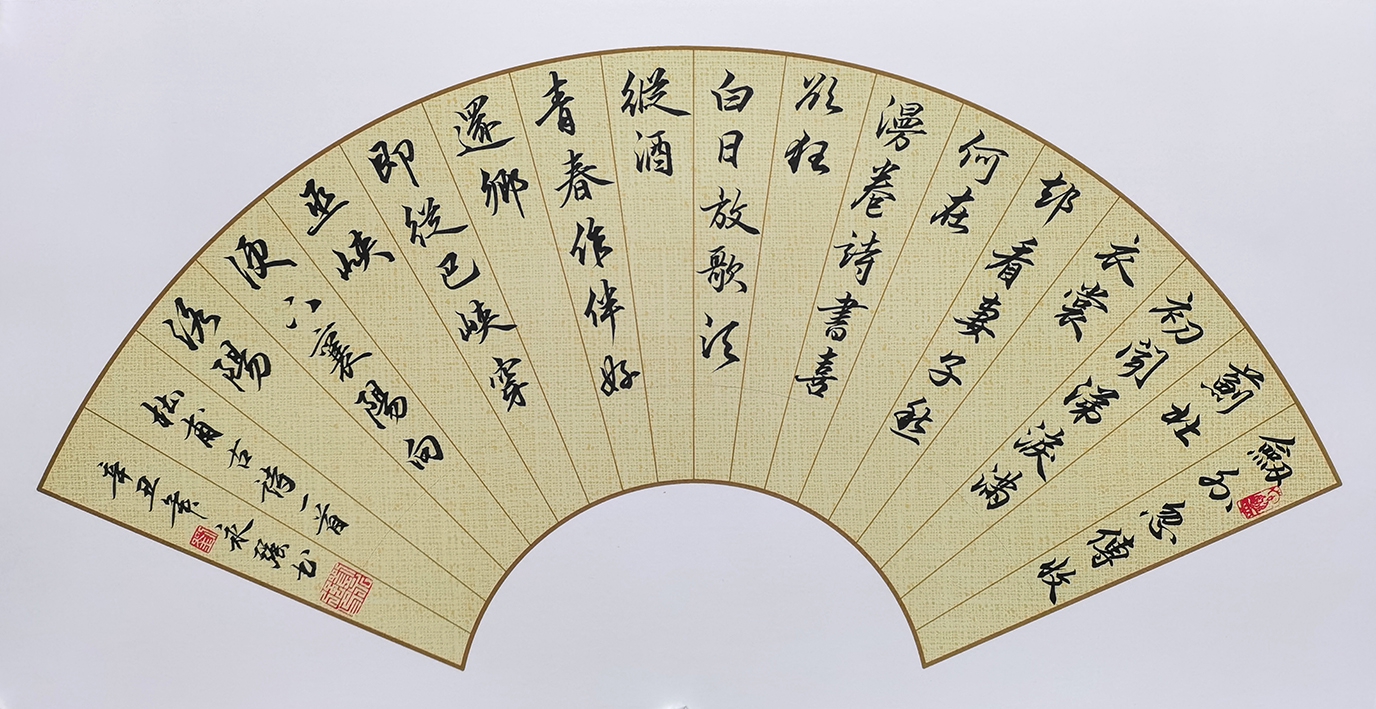 劍外忽傳收
薊北
初聞涕淚滿
衣裳
却看妻子愁
何在
漫卷詩書喜
欲狂
白日放歌須
縱酒
青春作伴好
還鄉
即從巴峽穿
巫峽
便下襄陽向
洛陽
杜甫古詩一首
辛丑書